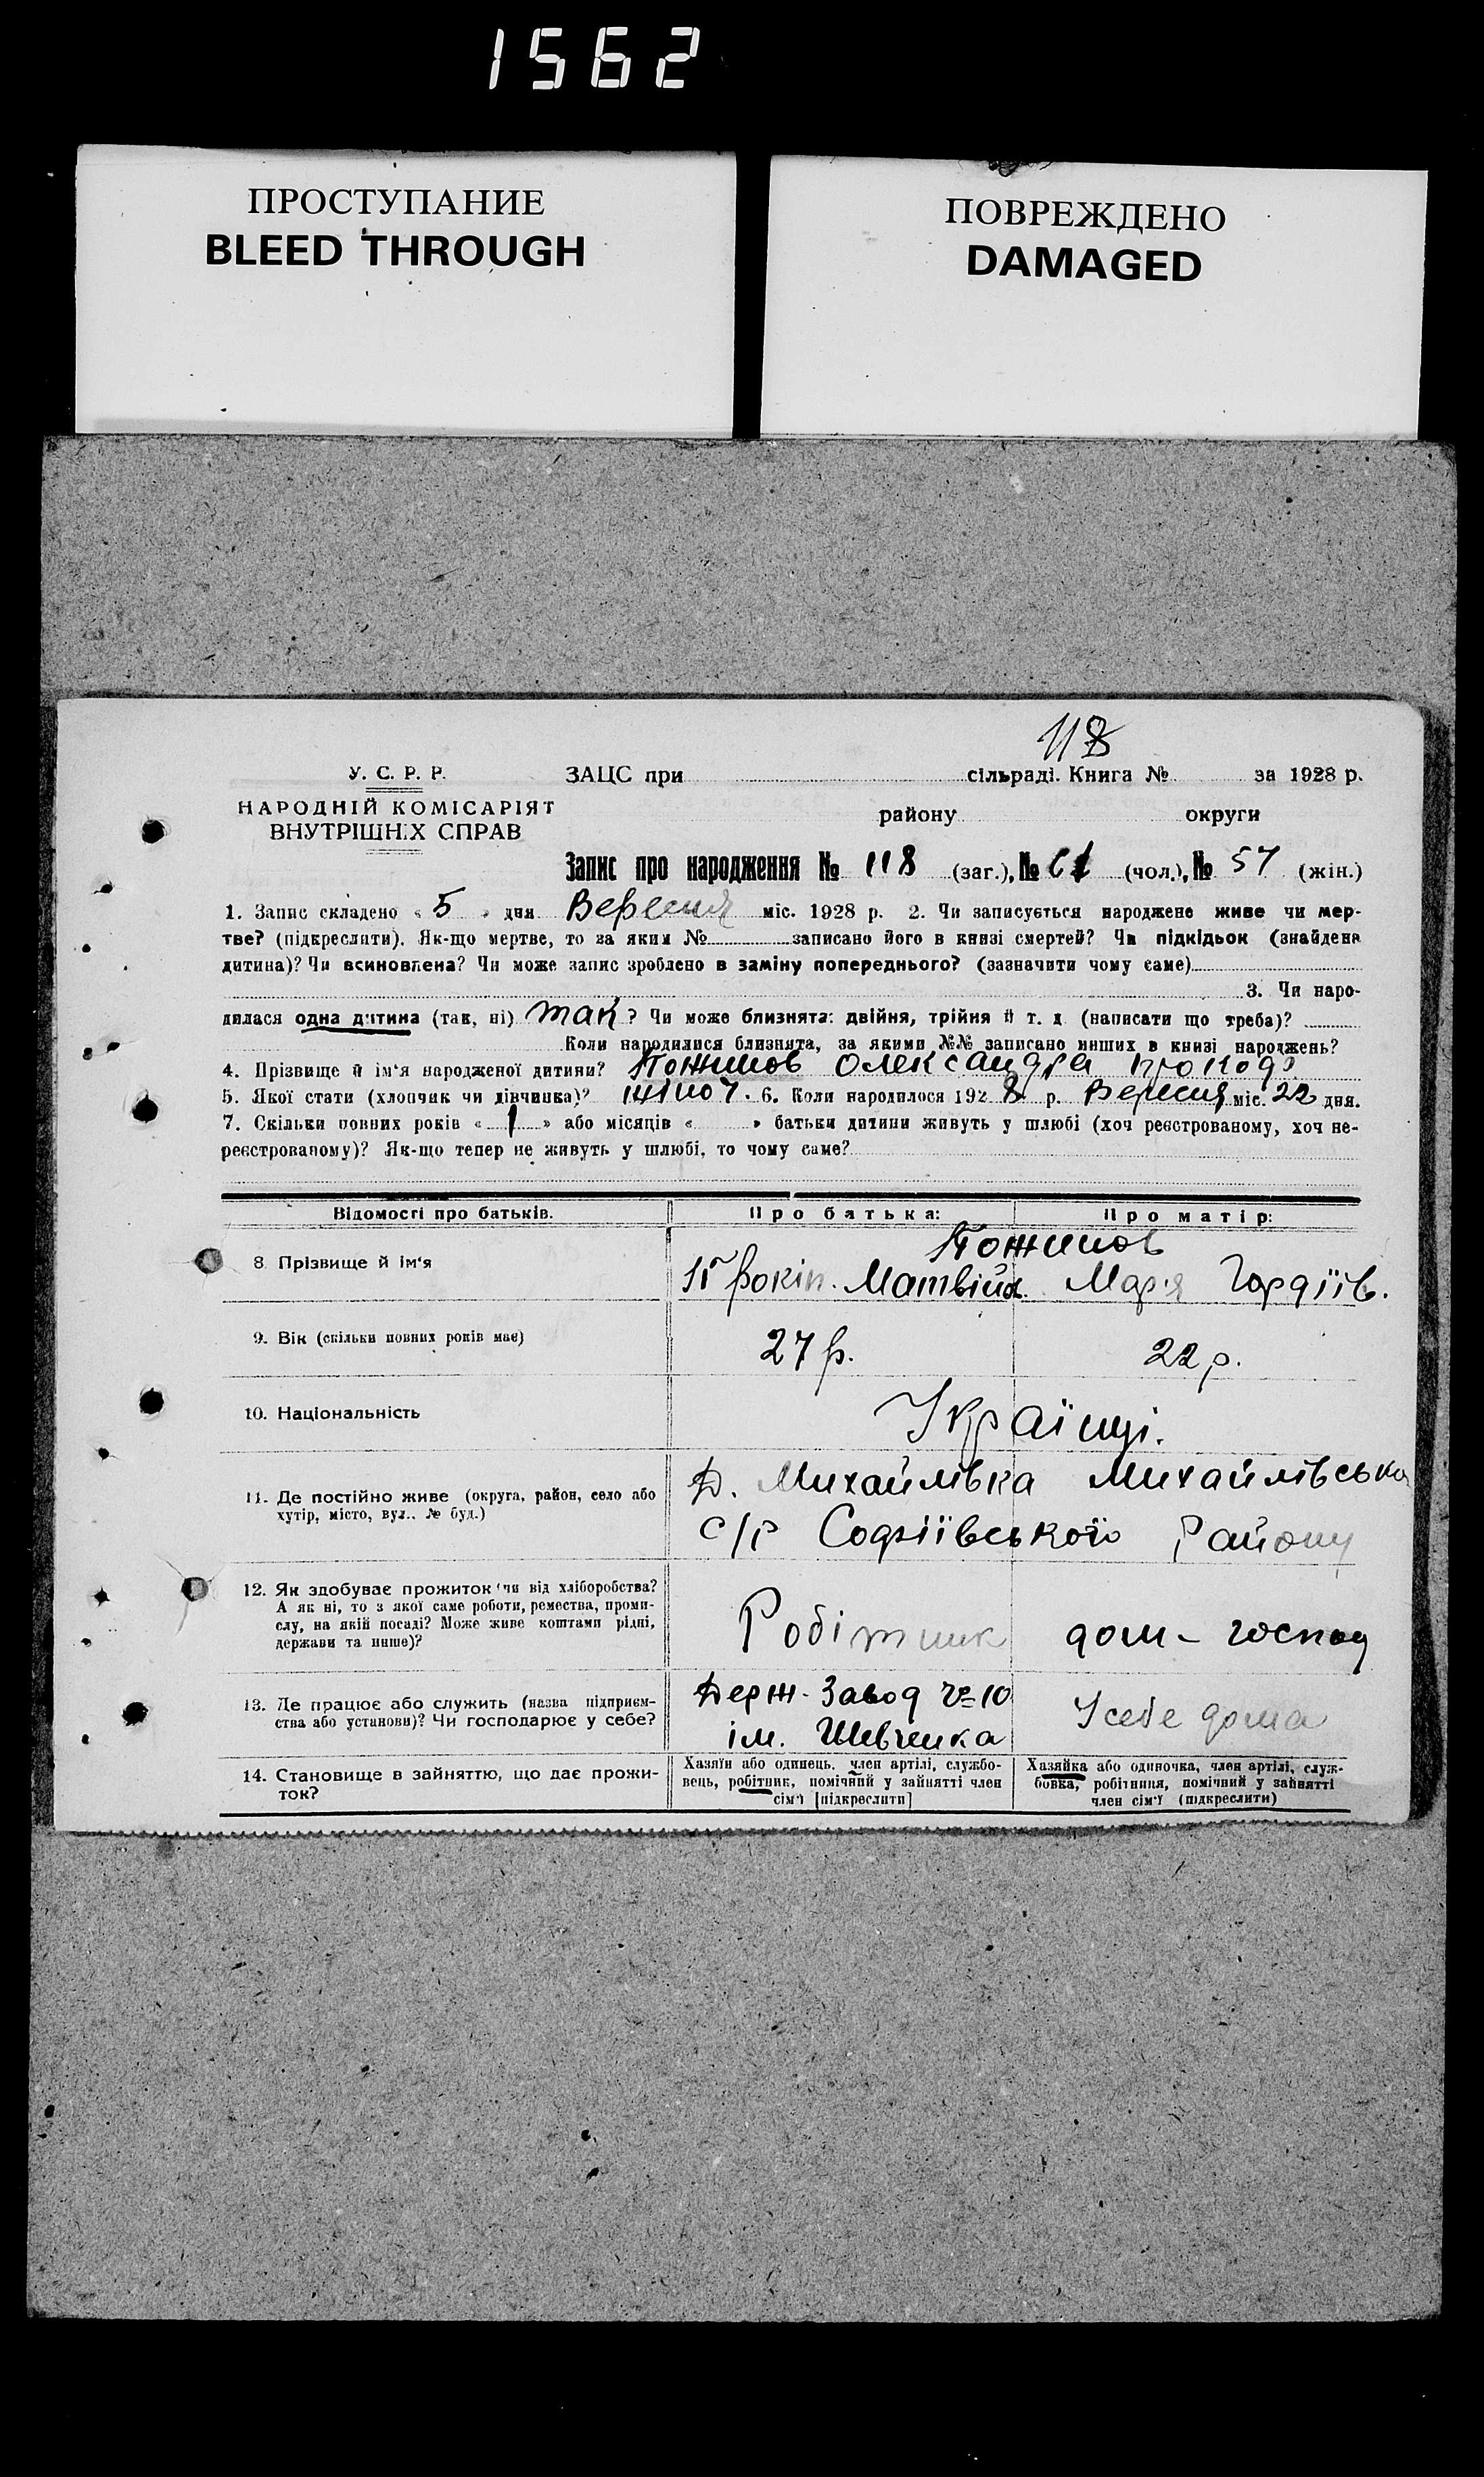 1562
ПРОСТУПАНИЕ
BLEED THROUGH
ПОВРЕЖДЕНО
DAMAGED
118
У. С. Р. Р.
НАРОДНІЙ КОМІСАРІЯТ
ВНУТРІШНІХ СПРАВ
ЗАЦС при сільраді. Книга № за 1928 р.
району округи
Запис про народження № 118 (заг.), № 61 (чол.), № 57 (жін.)
1. Запис складено « 5 » дня Вересня міс. 1928 р. 2. Чи записується народжене живе чи мер-
тве? (підкреслити). Як-що мертве, то за яким № записано його в книзі смертей? Чи підкідьок (знайдена
дитина)? Чи всиновлена? Чи може запис зроблено в заміну попереднього? (зазначити чому саме)
3. Чи наро-
дилася одна дитина (так, ні) так? Чи може близнята: двійня, трійня й т. д. (написати що треба)?
Коли народилися близнята, за якими №№ записано инших в книзі народжень?
4. Прізвище й ім'я народженої дитини? Пожинов Олександра
5. Якої стати (хлопчик чи дівчинка)? жіноч. 6. Коли народилося 1928 р. Вересня міс. 22 дня.
7. Скільки повних років « 1 » або місяців « » батьки дитини живуть у шлюбі (хоч реєстрованому, хоч не-
реєстрованому)? Як-що тепер не живуть у шлюбі, то чому саме?
Відомості про батьків.
Про батька:
Про матір:
8. Прізвище й ім'я
Пожинов
Прокіп. Матвійов. Марія Гордіїв.
9. Вік (скільки повних років має)
27 р.
22 р.
10. Національність
Українці.
11. Де постійно живе (округа, район, село або
хутір, місто, вул., № буд.)
Д. Михайлівка Михайлівська
с/р Софіївського Району
12. Як здобуває прожиток (чи від хліборобства?
А як ні, то з якої саме роботи, ремества, проми-
слу, на якій посаді? Може живе коштами рідні,
держави та инше)?
Робітник
дом - господ
13. Де працює або служить (назва підприєм-
ства або установи)? Чи господарює у себе?
Держ. Завод № 10
ім. Шевченка
У себе дома
14. Становище в зайняттю, що дає прожи-
ток?
Хазяїн або одинець, член артілі, службо-
вець, робітник, помічний у зайнятті член
сім'ї [підкреслити]
Хазяйка або одиночка, член артілі, служ-
бовка, робітниця, помічний у зайнятті
член сім'ї (підкреслити)